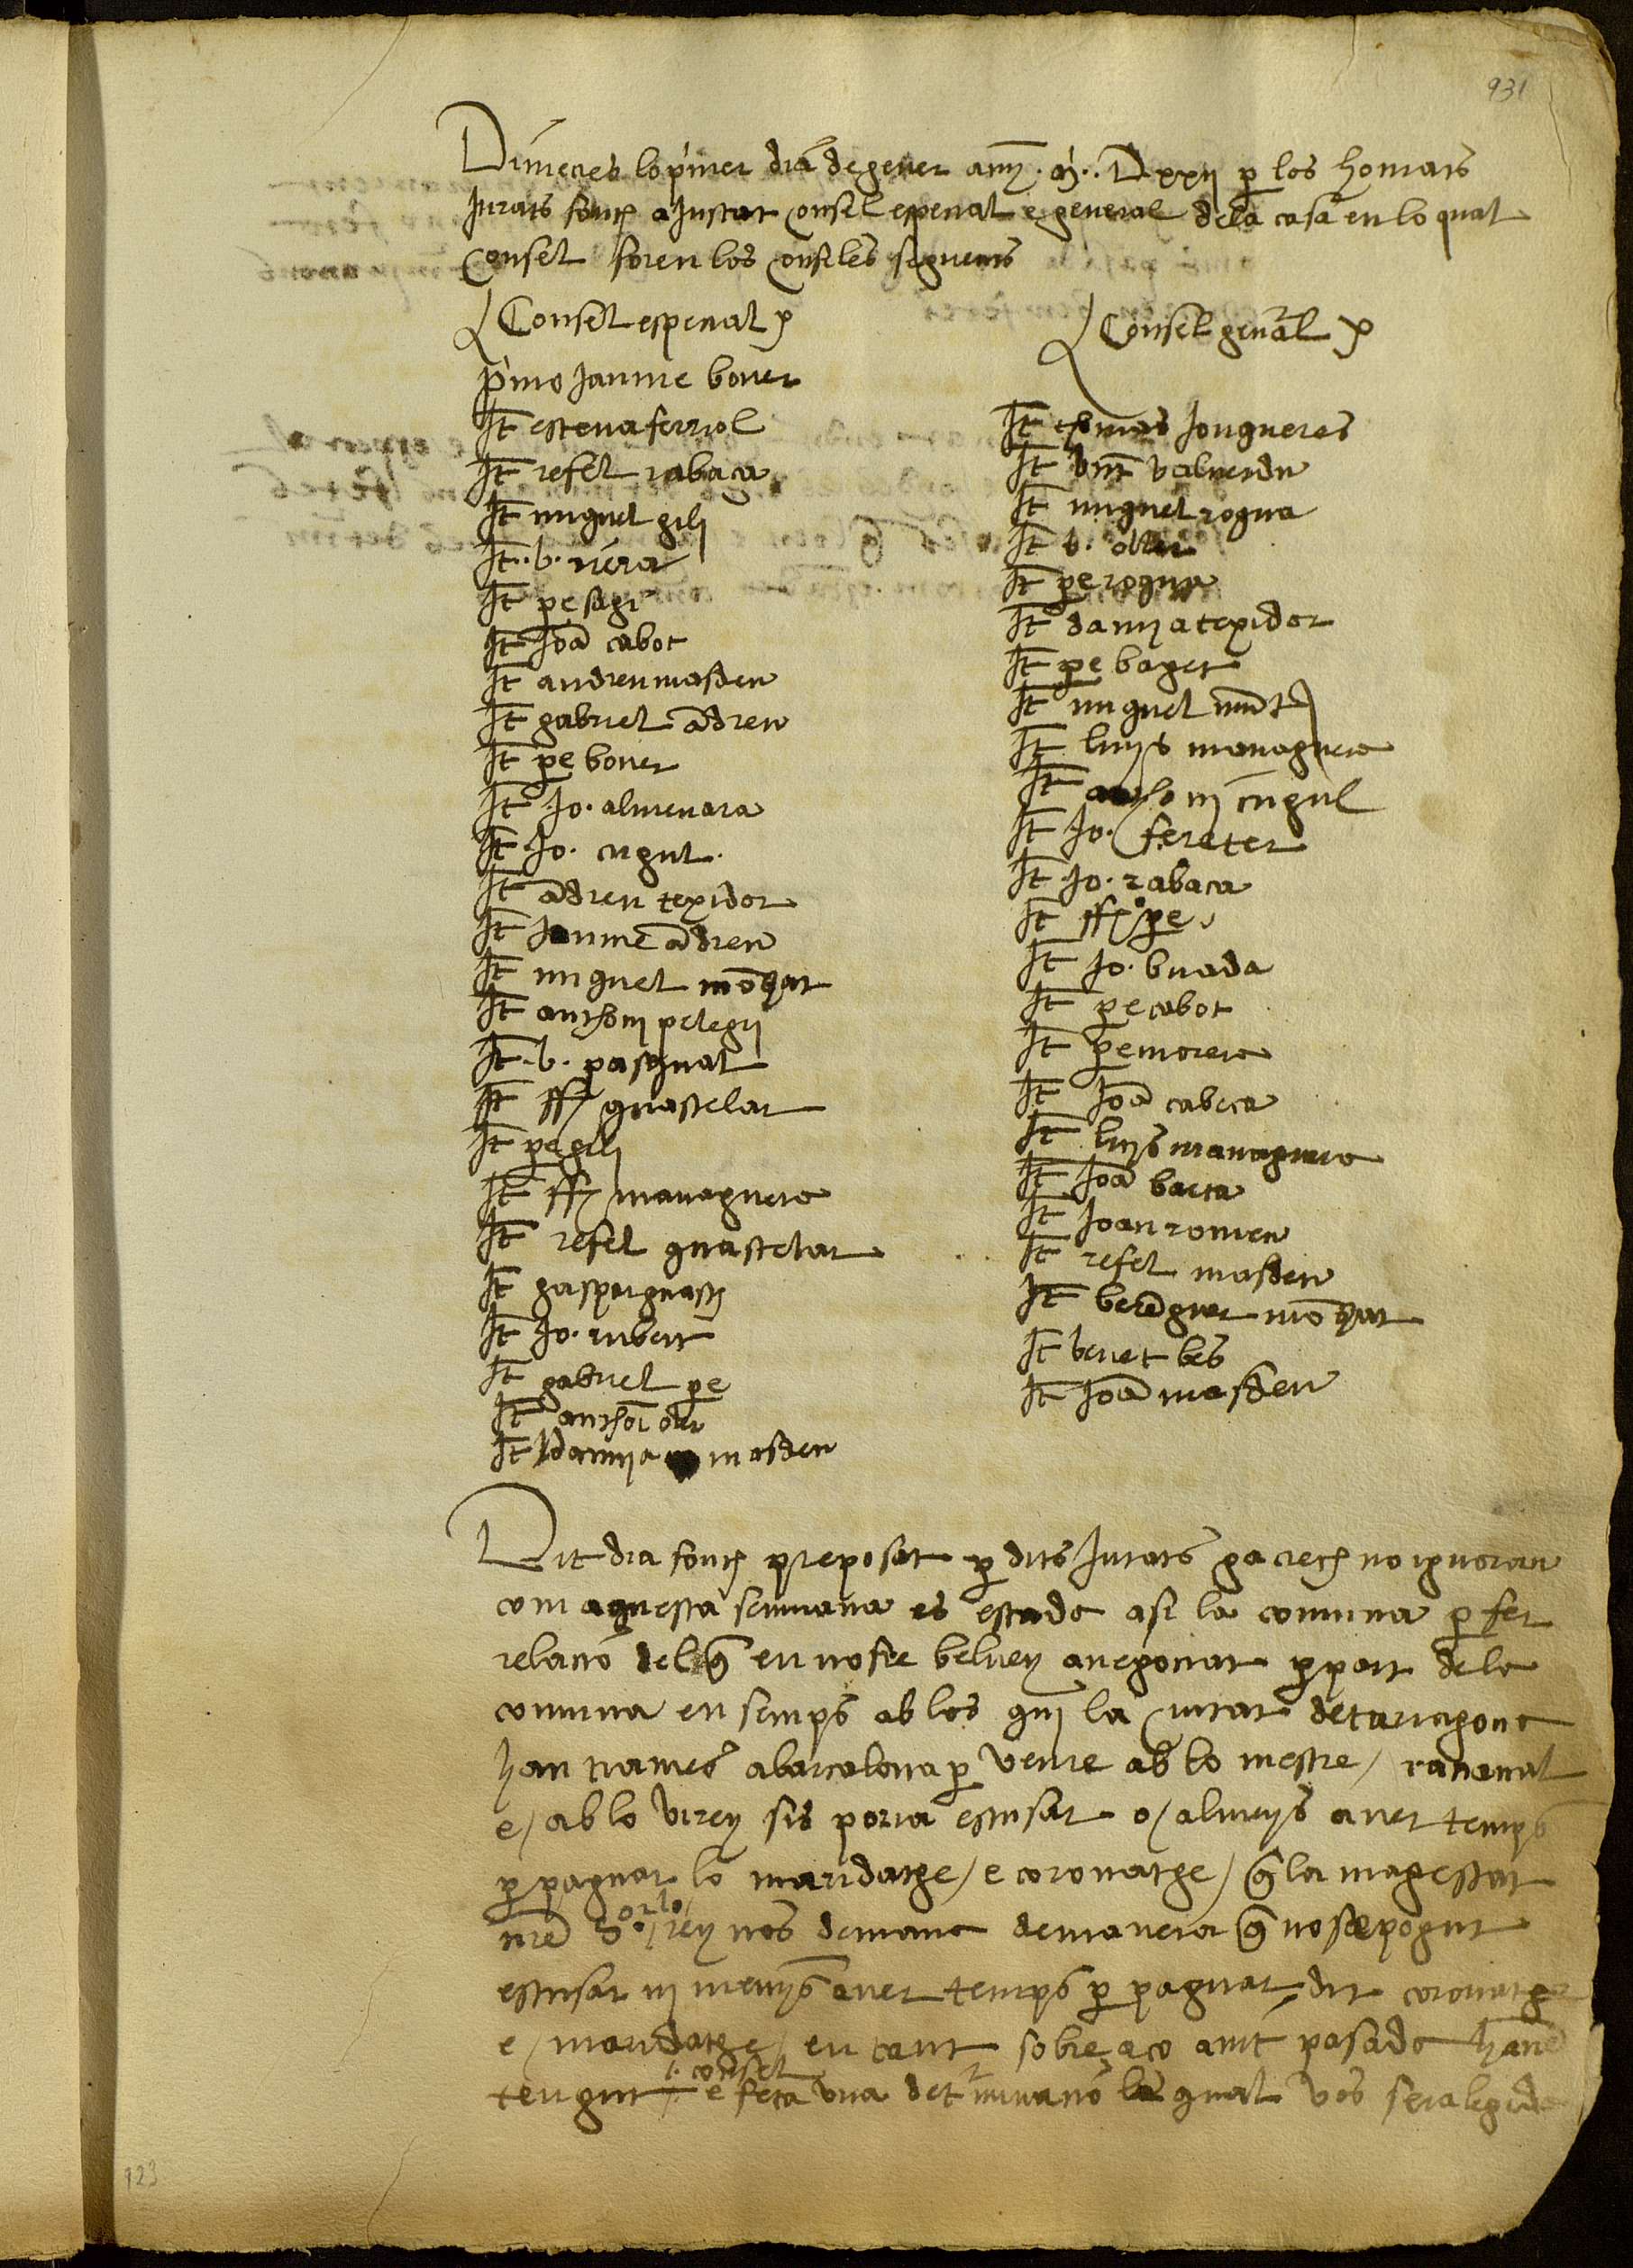 931
Dimecres lo primer dia de gener any . m . . Dxxij per los homats
Jurats fonch aJustat consel especial e general de la casa en lo qual
consel foren los consiles seguens
Consel especial
Consel general
primo Jaume bover
It esteva ferriol
It refel rabaca
It miguel gili
It . b . riera
It pe sagi
It Joa cabot
It andreu masdeu
It gabriel adreu
It pe bover
It Jo. almenara
It Jo. cugul .
It adreu texidor
It Jaume adreu
It miguel
It anthoni pelegri
It . b . pasqual
It ff guastelar
It pe gili
It ff managuera
It refel guastelar
It gaspar guasch
It Jo. rubert
It gabriel pe
It anthoi oler
It damia masdeu
It Jongueres
It valverdu
It miguel rogua
It b. oller
It pe rogua
It damia texidor
It pe baget
It miguel
It luys managuera
It anthoni cugul
It Jo. fereter
It Jo. rabaca
It ff pe
It Jo. buada
It pe cabot
It pe morera
It Joa cabeca
It luys managuera
It Joa
It Joan romeu
It refel masdeu
It bereguer
It benet bes
It Joa masdeu
Dit dia fonch preposat per dits Jurats ga crech no ignoran
com aquesta semmana es estada asi la comuna per fer
relacio del que en nofre belvey a negociat per part de la
comuna ensemps ab los qui la ciutat de tarragona
han trames a barcelona per veure ab lo mestre / racional
e / ab lo virey sis poria escusar o / almeys aver temps
per paguar lo maridatge / e coronatge / que la magestat
nre Sor lo rey nos demana de manera que no se pogut
escusar ni menys aver temps per paguar dit coronatge
e / maridatge / en tant sobre aco anit pasada
tengut . consel e feta una determinacio la qual vos sera legida
123